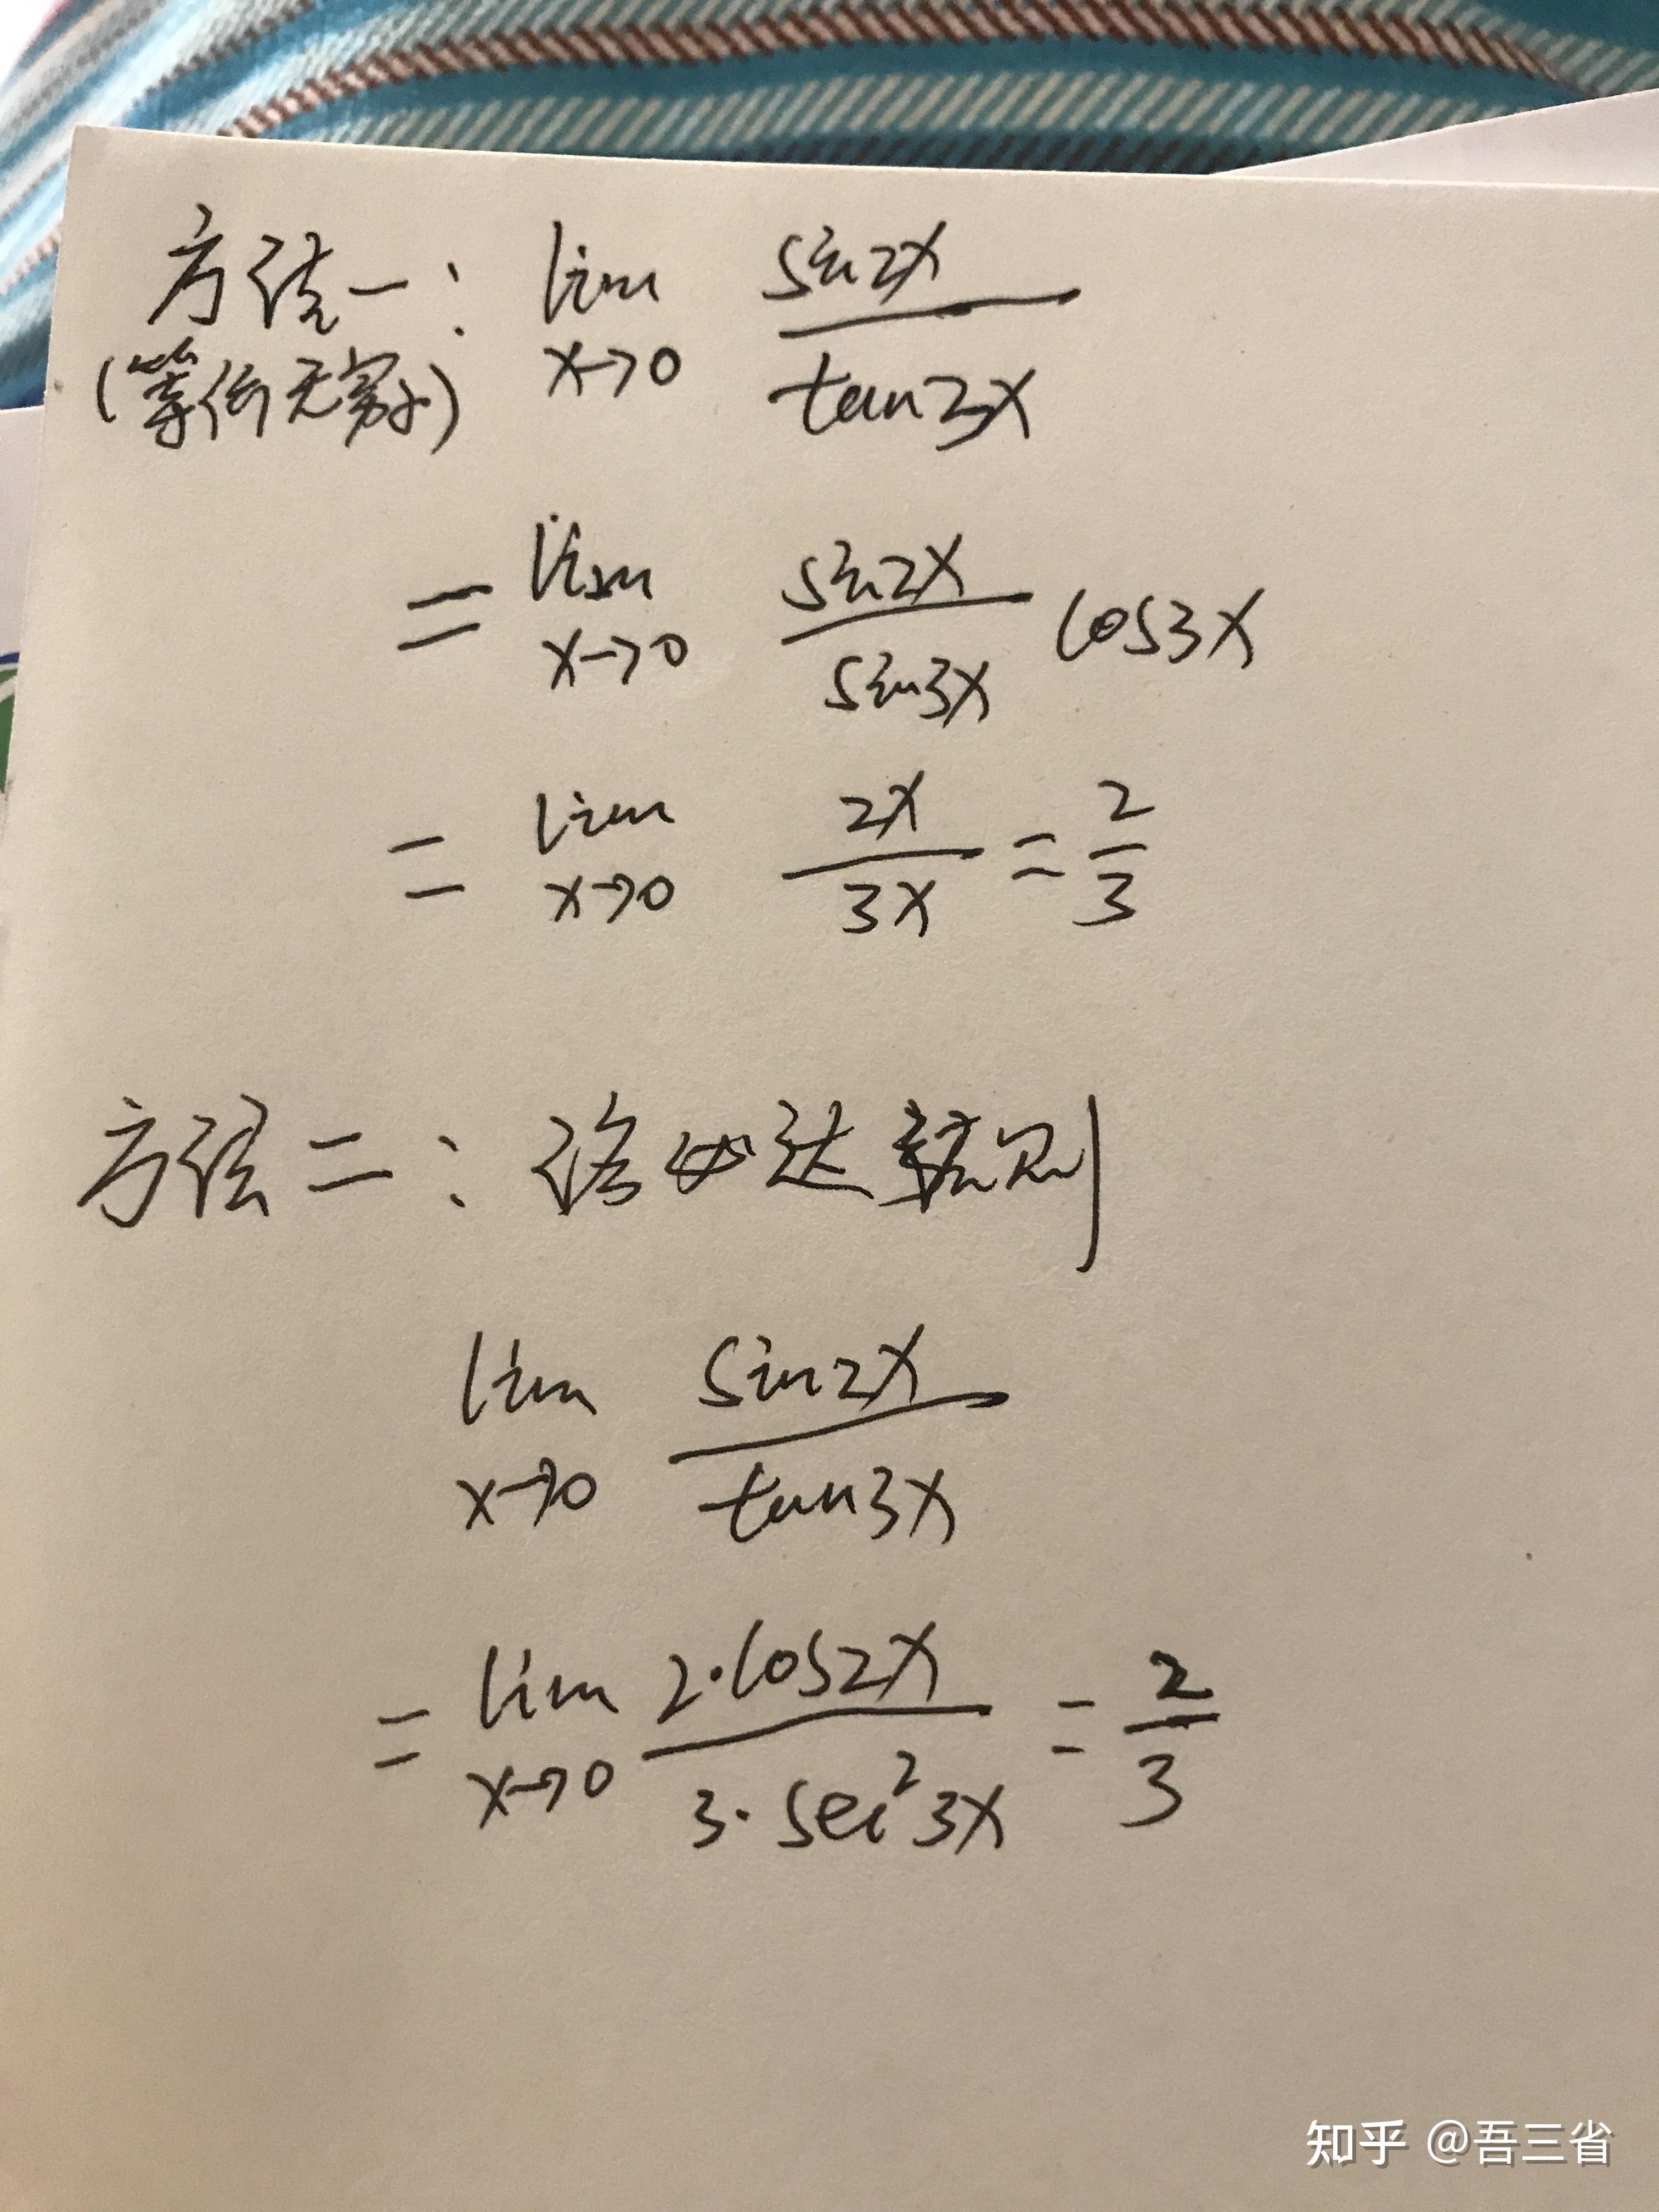 方法一: lim sin2x / tan3x
(等价无穷小) x→0
= lim x→0 sin2x / sin3x cos3x
= lim x→0 2x / 3x = 2/3
方法二: 洛必达法则
lim x→0 sin2x / tan3x
= lim x→0 2·cos2x / 3·sec²3x = 2/3
知乎 @吾三省